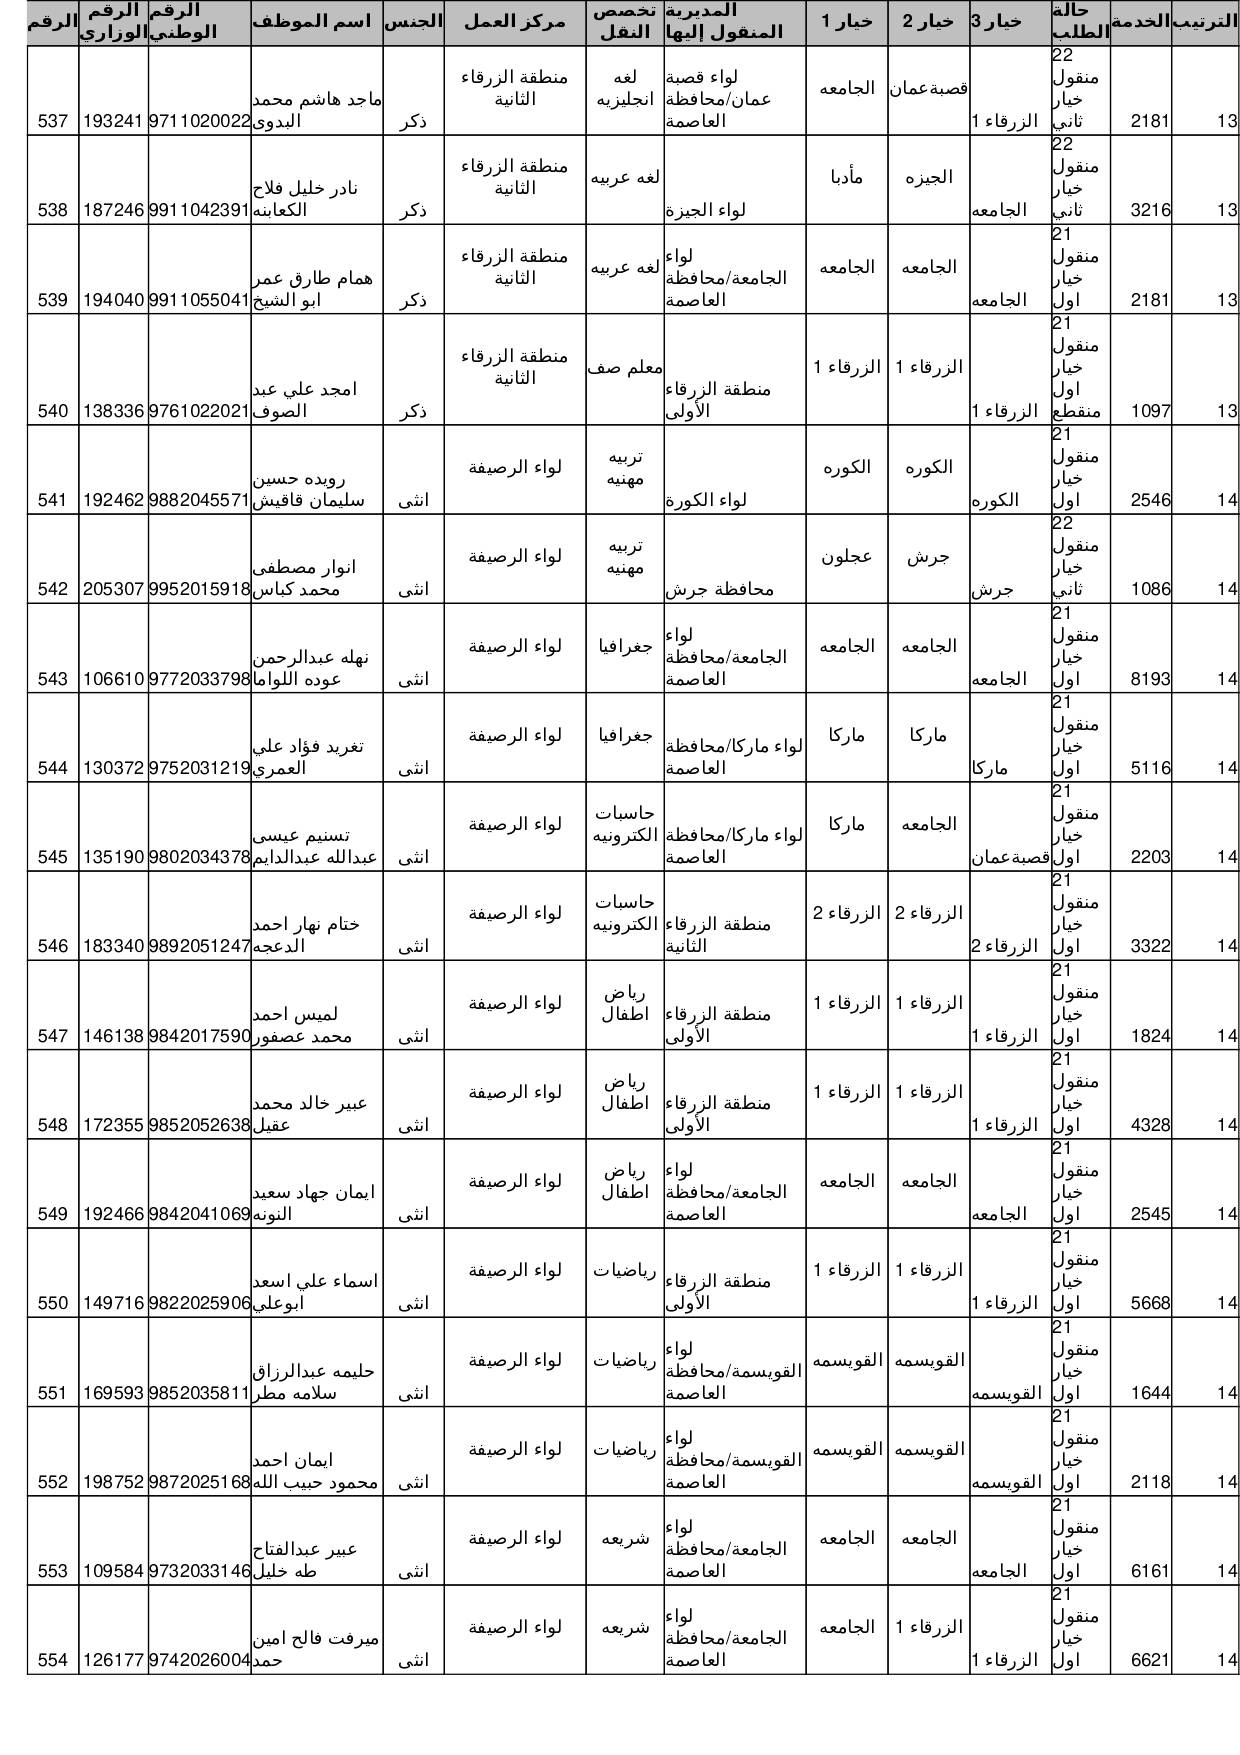 الرقم الرقم الوزاري الرقم الوطني اسم الموظف الجنس مركز العمل تخصص النقل المديرية المنقول إليها خيار 1 خيار 2 خيار 3 حالة الطلب الخدمة الترتيب
537 193241 9711020022 ماجد هاشم محمد البدوى ذكر منطقة الزرقاء الثانية لغه انجليزيه لواء قصبة عمان/محافظة العاصمة الجامعه قصبةعمان الزرقاء 1 22 منقول خيار ثاني 2181 13
538 187246 9911042391 نادر خليل فلاح الكعابنه ذكر منطقة الزرقاء الثانية لغه عربيه لواء الجيزة مأدبا الجيزه الجامعه 22 منقول خيار ثاني 3216 13
539 194040 9911055041 همام طارق عمر ابو الشيخ ذكر منطقة الزرقاء الثانية لغه عربيه لواء الجامعة/محافظة العاصمة الجامعه الجامعه الجامعه 21 منقول خيار اول 2181 13
540 138336 9761022021 امجد علي عبد الصوف ذكر منطقة الزرقاء الثانية معلم صف منطقة الزرقاء الأولى الزرقاء 1 الزرقاء 1 الزرقاء 1 21 منقول خيار اول منقطع 1097 13
541 192462 9882045571 رويده حسين سليمان قاقيش انثى لواء الرصيفة تربيه مهنيه لواء الكورة الكوره الكوره الكوره 21 منقول خيار اول 2546 14
542 205307 9952015918 انوار مصطفى محمد كباس انثى لواء الرصيفة تربيه مهنيه محافظة جرش عجلون جرش جرش 22 منقول خيار ثاني 1086 14
543 106610 9772033798 نهله عبدالرحمن عوده اللواما انثى لواء الرصيفة جغرافيا لواء الجامعة/محافظة العاصمة الجامعه الجامعه الجامعه 21 منقول خيار اول 8193 14
544 130372 9752031219 تغريد فؤاد علي العمري انثى لواء الرصيفة جغرافيا لواء ماركا/محافظة العاصمة ماركا ماركا ماركا 21 منقول خيار اول 5116 14
545 135190 9802034378 تسنيم عيسى عبدالله عبدالدايم انثى لواء الرصيفة حاسبات الكترونيه لواء ماركا/محافظة العاصمة ماركا الجامعه قصبةعمان 21 منقول خيار اول 2203 14
546 183340 9892051247 ختام نهار احمد الدعجه انثى لواء الرصيفة حاسبات الكترونيه منطقة الزرقاء الثانية الزرقاء 2 الزرقاء 2 الزرقاء 2 21 منقول خيار اول 3322 14
547 146138 9842017590 لميس احمد محمد عصفور انثى لواء الرصيفة رياض اطفال منطقة الزرقاء الأولى الزرقاء 1 الزرقاء 1 الزرقاء 1 21 منقول خيار اول 1824 14
548 172355 9852052638 عبير خالد محمد عقيل انثى لواء الرصيفة رياض اطفال منطقة الزرقاء الأولى الزرقاء 1 الزرقاء 1 الزرقاء 1 21 منقول خيار اول 4328 14
549 192466 9842041069 ايمان جهاد سعيد النونه انثى لواء الرصيفة رياض اطفال لواء الجامعة/محافظة العاصمة الجامعه الجامعه الجامعه 21 منقول خيار اول 2545 14
550 149716 9822025906 اسماء علي اسعد ابوعلي انثى لواء الرصيفة رياضيات منطقة الزرقاء الأولى الزرقاء 1 الزرقاء 1 الزرقاء 1 21 منقول خيار اول 5668 14
551 169593 9852035811 حليمه عبدالرزاق سلامه مطر انثى لواء الرصيفة رياضيات لواء القويسمة/محافظة العاصمة القويسمه القويسمه القويسمه 21 منقول خيار اول 1644 14
552 198752 9872025168 ايمان احمد محمود حبيب الله انثى لواء الرصيفة رياضيات لواء القويسمة/محافظة العاصمة القويسمه القويسمه القويسمه 21 منقول خيار اول 2118 14
553 109584 9732033146 عبير عبدالفتاح طه خليل انثى لواء الرصيفة شريعه لواء الجامعة/محافظة العاصمة الجامعه الجامعه الجامعه 21 منقول خيار اول 6161 14
554 126177 9742026004 ميرفت فالح امين حمد انثى لواء الرصيفة شريعه لواء الجامعة/محافظة العاصمة الجامعه الزرقاء 1 الزرقاء 1 21 منقول خيار اول 6621 14